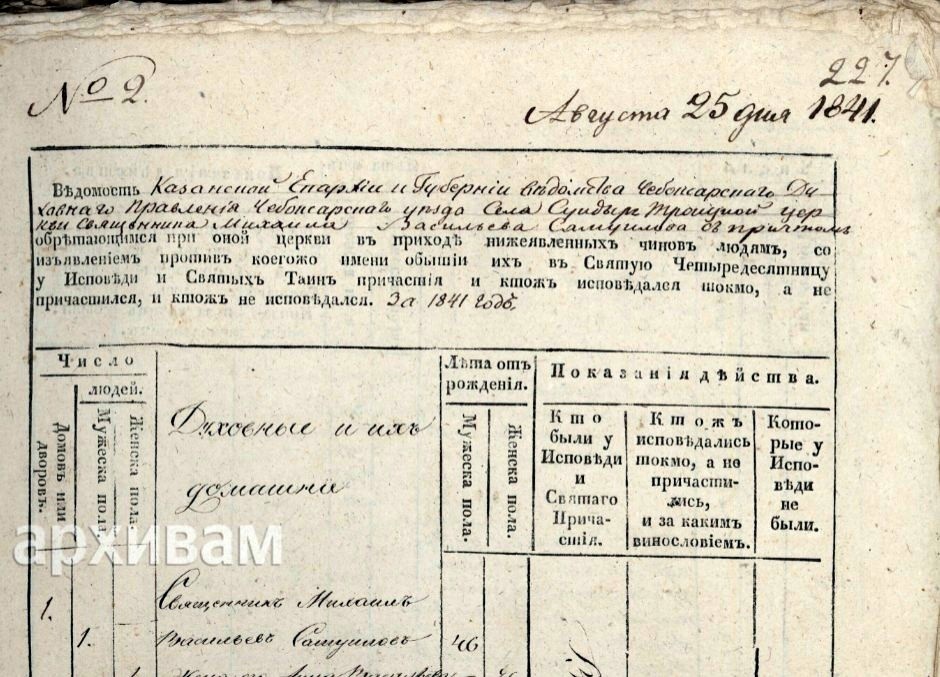 № 2.
227.
Августа 25 дня 1841.
Вѣдомость Казанской Епархіи и Губерніи вѣдомства Чебоксарскаго Ду-
ховнаго Правленія Чебоксарскаго уѣзда Села Сундырь Троицкой цер-
кви священника Михаила Васильева Самуилова съ причтомъ
обрѣтающимся при оной церкви въ приходѣ нижеявленныхъ чиновъ людямъ, со
изъявленіемъ противъ коегожо имени бытіи ихъ въ Святую Четыредесятницу
у Исповѣди и Святыхъ Таинъ причастія и ктожъ исповѣдался токмо, а не
причастился, и ктожъ не исповѣдался. За 1841 годъ.
Число
людей.
Домовъ или дворовъ.
Мужеска пола.
Женска пола.
Духовные и ихъ
домашніе
Лѣта отъ
рожденія.
Мужеска пола.
Женска пола.
Показанія дѣйства.
Кто
были у
Исповѣди
и
Святаго
Прича-
стія.
Ктожъ
исповѣдались
токмо, а не
причасти-
лись,
и за какимъ
винословіемъ.
Кото-
рые у
Испо-
вѣди
не
были.
архивам
1.
Священникъ Михаилъ
1. Васильевъ Самуиловъ 46